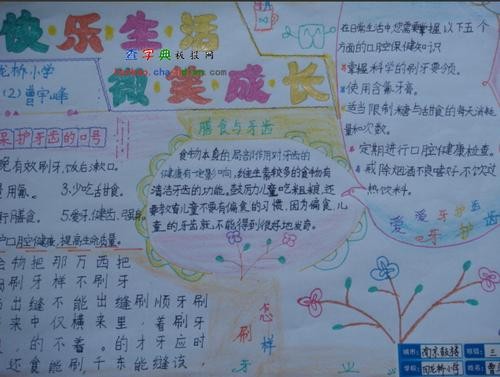 快乐生活
查字典教报网
微笑成长
龙桥小学
(2) 曹宇峰
保护牙齿的口号
有效刷牙，饭后漱口。
用氟。 3.少吃甜食。
膳食。 5.爱牙，健齿，强身。
口腔健康，提高生命质量。
膳食与牙齿
食物本身的局部作用对牙齿的
健康有一定影响，纤维素较多的食物有
清洁牙齿的功能。鼓励儿童吃粗粮，还
要教育儿童不要有偏食的习惯，因为偏食，儿
童的牙齿就不能得到很好地发育。
在日常生活中，您需要掌握以下五个
方面的口腔保健知识
掌握科学的刷牙要领。
使用含氟牙膏。
适当限制糖与甜食的每天消耗
量和次数。
定期进行口腔健康检查。
戒除烟酒不良嗜好，不饮过
热饮料。
爱爱牙护齿
牙护齿
怎样刷牙
物把那万西把
刷牙样不刷牙
出缝不能出缝刷顺牙刷
来中仅横来里，着刷牙
，的不着。的才牙应时
还食能刷，千东能缝该，
城市：南京
班级：三
学校：
姓名：曹